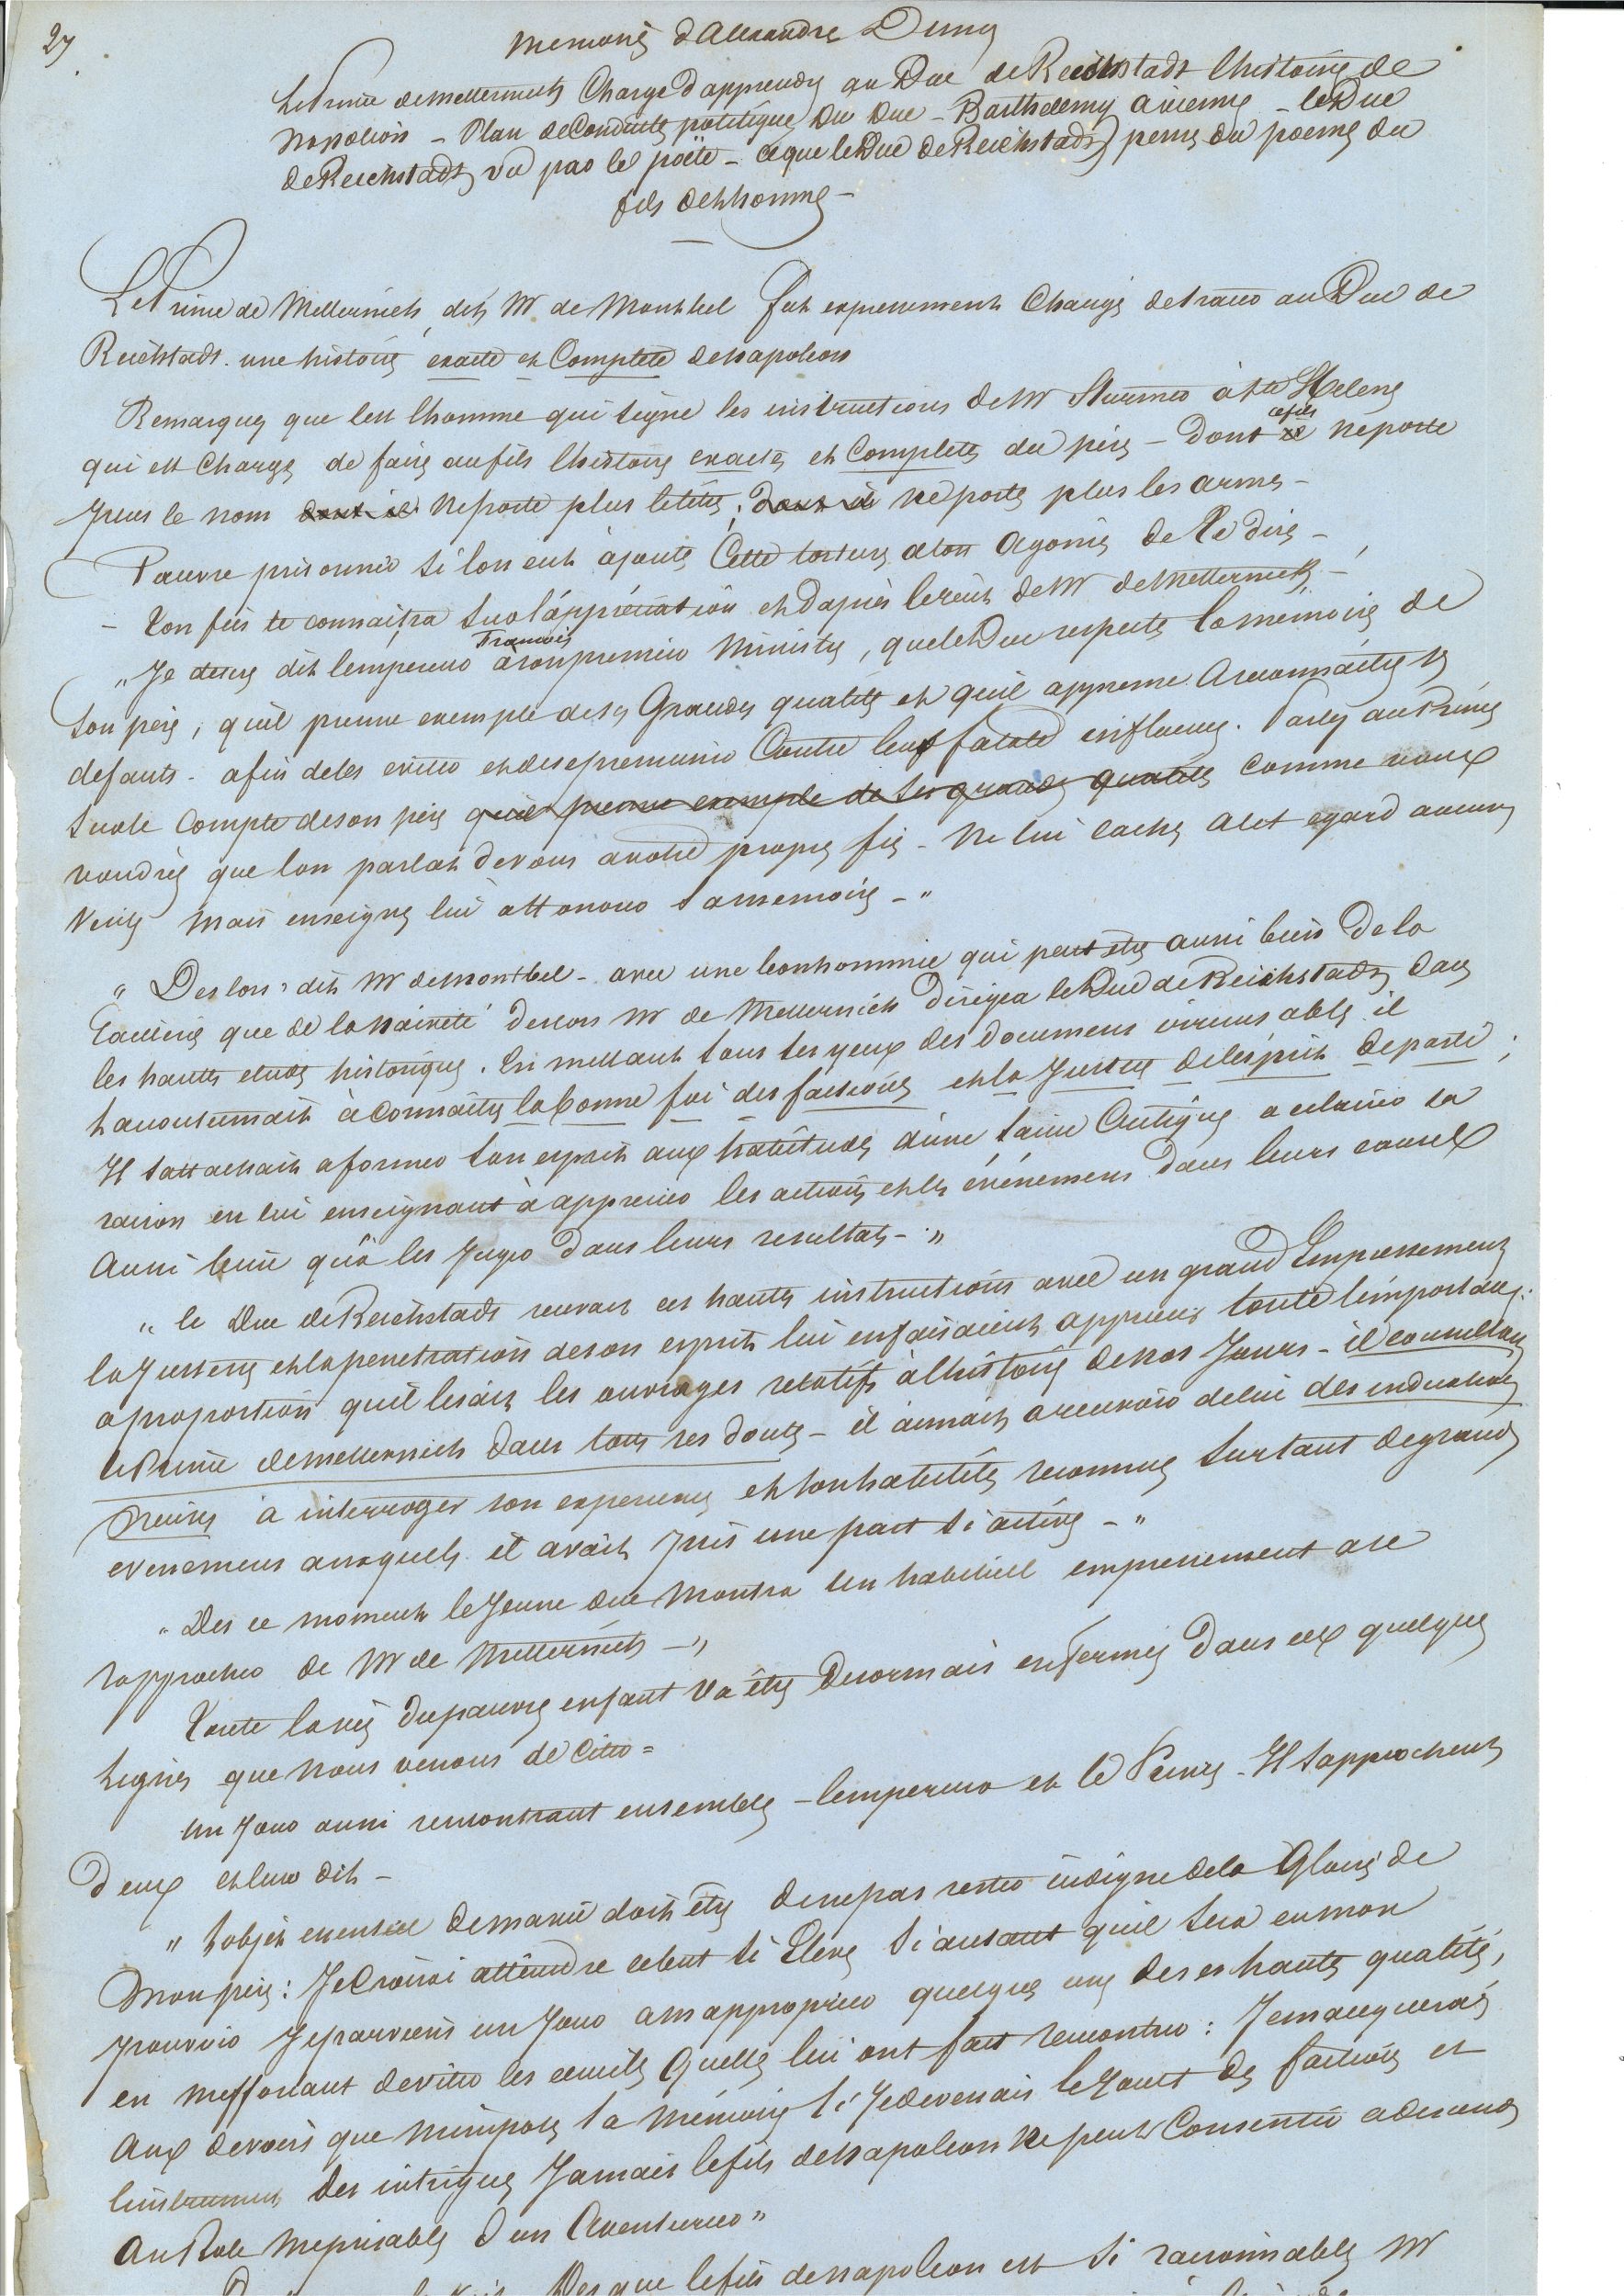 27
Memoires d'Alexandre Dumas
Le Prince de Metternich Chargé d'apprendre au Duc de Reichstadt l'histoire de
Napoléon - Plan de Conduite politique du Duc - Barthelemy a vienne - le Duc
de Reichstadt vu par le poëte - ce que le Duc de Reichstadt pense du poeme du
fils de l'homme -
Le Prince de Metternich, dit Mr de Montbel fut expressement Chargé de tracer au Duc de
Reichstadt une histoire exacte et Complete de Napoleon
Remarquez que c'est l'homme qui signe les instructions de Mr Sturmer à Ste Helene
qui est Chargé de faire au fils l'histoire exacte et Complete du père - dont ce fils ne porte
plus le nom dont il ne porte plus le titre, dont il ne porte plus les armes -
Pauvre prisonnier si l'on eut ajouté Cette torture a ton Agonie de te dire -
- Ton fils te connaitra sur l'appréciation et d'après le récit de Mr de Metternich -
„ Je desire dit l'empereur François a son premier Ministre, que le Duc respecte la mémoire de
son père, qu'il prenne exemple de ses Grandes qualités et qu'il apprenne A reconnaître ses
defauts - afin de les eviter et de se premunir Contre leur fatale influence. Parlez au Prince
sur le Compte de son père qu'il prenne exemple de ses grandes qualités comme vous
voudriez que l'on parlat de vous a votre propre fils - Ne lui cachez a cet egard aucune
Verité Mais enseignez lui a honorer sa memoire - „
„ Des lors, dit Mr de Montbel - avec une bonhommie qui peut être aussi bien de la
raillerie que de la naiveté des lors Mr de Metternich Dirigea le Duc de Reichstadt dans
les hautes etudes historiques. En mettant sous ses yeux des documens irrecusables il
l'accoutumait à connaître la bonne foi des factions et la Justice de l'esprit de parti ;
Il s'attachait a former son esprit aux habitudes d'une saine Critique a eclairer sa
raison en lui enseignant à apprecier les actions et les événemens dans leurs causes
Aussi bien qu'à les Juger dans leurs resultats - „
„ le Duc de Reichstadt recevait ces hautes instructions avec un grand Empressement
la Justesse et la penetration de son esprit lui en faisaient apprecier toute l'importance :
a proportion qu'il lisait les ouvrages relatifs à l'histoire de nos Jours - il consultait
le Prince de Metternich dans tous ses doutes - il aimait a recevoir de lui des indications
precises a interroger son experience et son habileté reconnue sur tant de grands
evenemens auxquels il avait Pris une part si active - „
„ Des ce moment le Jeune duc Montra un habituel empressement a se
rapprocher de Mr de Metternich - „
Toute la vie du pauvre enfant va être Desormais enfermée dans ces quelques
lignes que nous venons de Citer =
Un Jour aussi rencontrant ensemble - l'empereur et le Prince - Il s'approcha
d'eux et leur dit -
„ L'objet essentiel de ma vie doit être de ne pas rester indigne de la Gloire de
Mon père : Je Croirai atteindre ce but si Elevé Si autant qu'il sera en mon
pouvoir Je parviens un Jour a m'approprier quelques unes de ses hautes qualités,
en m'efforçant d'eviter les ecueils Qu'elles lui ont fait rencontrer : Je manquerais
Aux devoirs que m'impose sa Mémoire Si Je devenais le Jouet des factions et
l'instrument des intrigues Jamais le fils de Napoleon Ne peut Consentir a descendre
Au Role Meprisable d'un Aventurier „
Des que le fils de Napoleon est si raisonnable Mr